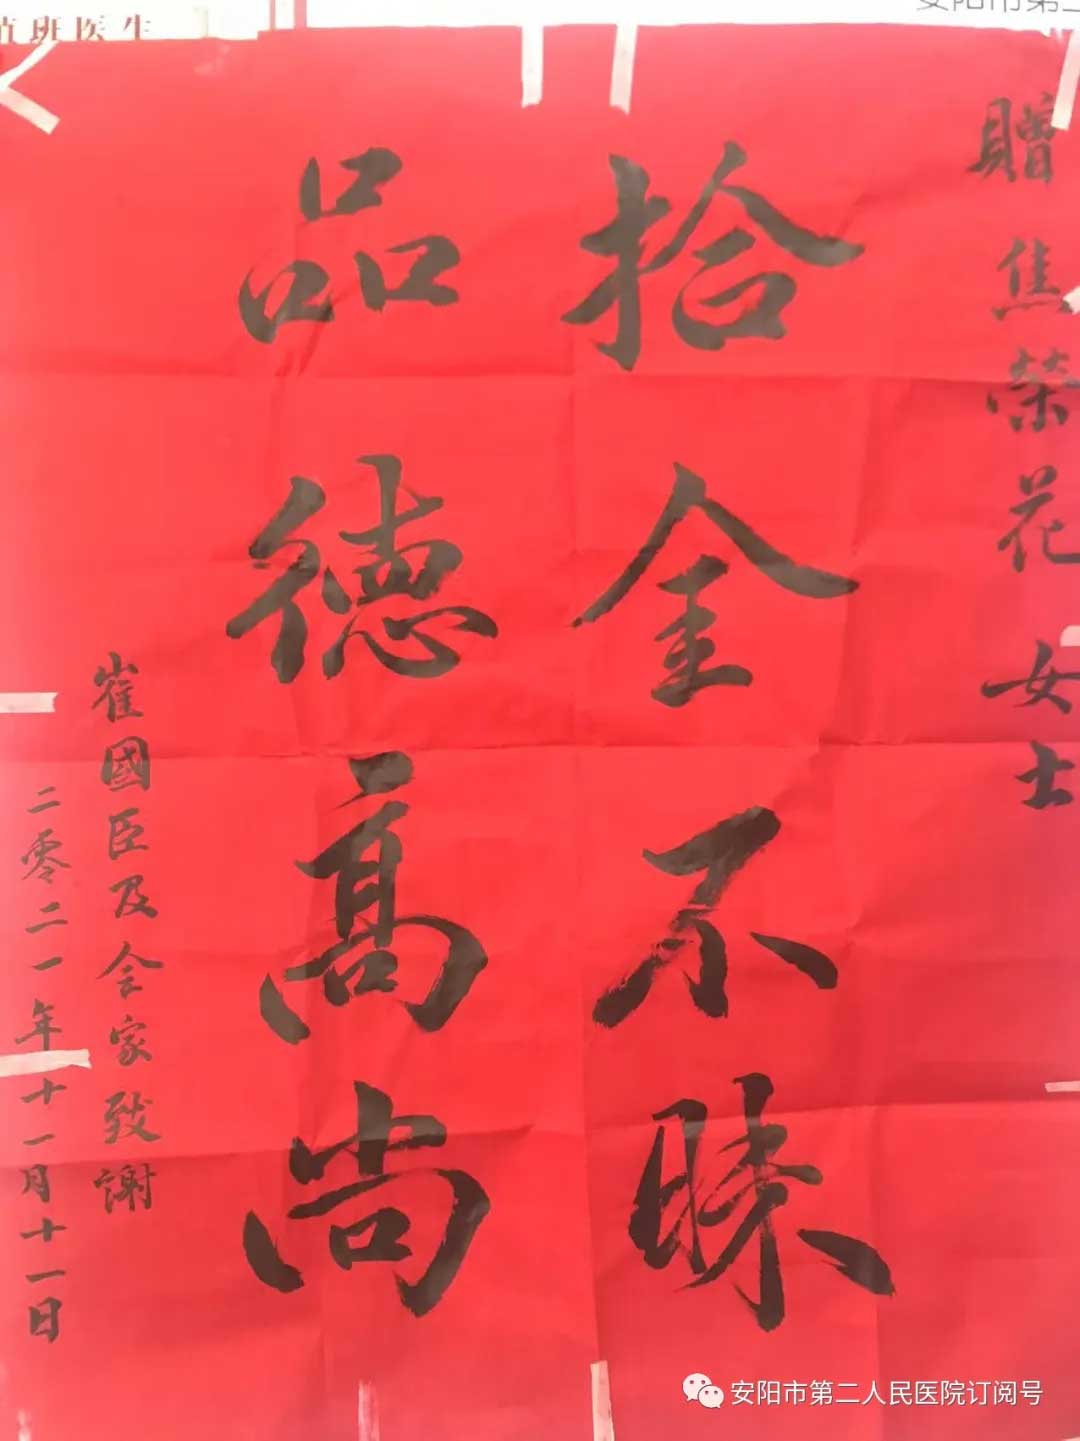 值班医生
安阳市第二
贈焦榮花女士
拾金不昧
品德高尚
崔國臣及全家致謝
二零二一年十一月十一日
安阳市第二人民医院订阅号